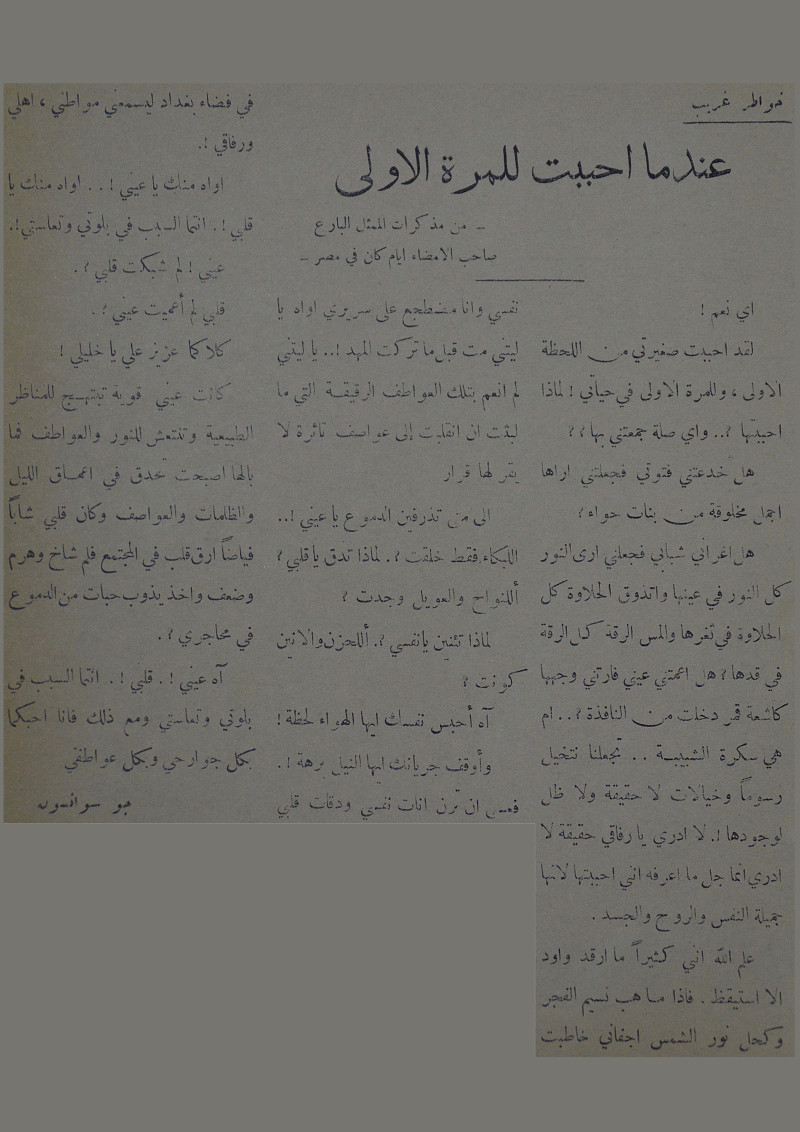 خواطر غريب
عندما احببت للمرة الاولى
ـ من مذكرات الممثل البارع
صاحب الامضاء ايام كان في مصر ـ
اي نعم !
لقد احببت صغيرتي من اللحظة
الاولى ، وللمرة الاولى في حياتي ! لماذا
احببتها ؟.. واي صلة جمعتني بها ؟؟
هل خدعتني فتوتي فجعلتني اراها
اجمل مخلوقة من بنات حواء ؟
هل اغراني شبابي فجعلني ارى النور
كل النور في عينها واتذوق الحلاوة كل
الحلاوة في ثغرها والمس الرقة كل الرقة
في قدها ؟ هل اعمتني عيني فارتني وجهها
كاشعة قمر دخلت من النافذة ؟.. ام
هي سكرة الشبيبة .. تجعلنا نتخيل
رسوماً وخيالات لا حقيقة ولا ظل
لوجودها !. لا ادري يا رفاقي حقيقة لا
ادري انما جل ما اعرفه انني احببتها لانها
جميلة النفس والروح والجسد .
علم الله انني كثيراً ما ارقد واود
الا استيقظ . فاذا ما هب نسيم الفجر
وكحل نور الشمس اجفاني خاطبت
نفسي وانا مضطجع على سريري اواه يا
ليتني مت قبل ما تركت المهد !.. يا ليتني
لم انعم بتلك العواطف الرقيقة التي ما
لبثت ان انقلبت إلى عواصف ثائرة لا
يقر لها قرار
الى متى تذرفين الدموع يا عيني !..
اللبكاء فقط خلقت ؟. لماذا تدق يا قلبي ؟
أللنواح والعويل وجدت ؟
لماذا تئنين يا نفسي ؟. أللحزن والانين
كونت ؟
آه أحبس نفسك ايها الهواء لحظة !
وأوقف جريانك ايها النيل برهة !.
فعسى ان ترن انات نفسي ودقات قلبي
في فضاء بغداد ليسمعني مواطني ، اهلي
ورفاقي !.
اواه منك يا عيني !. . اواه منك يا
قلبي !. انتما السبب في بلوتي وتعاستي !.
عيني ! لم شبكت قلبي ؟.
قلبي لم أعميت عيني ؟.
كلاكما عزيز علي يا خليلي !
كانت عيني قوية تبتهج للمناظر
الطبيعية وتنتعش للنور والعواطف فما
بالها اصبحت تحدق في اعماق الليل
والظلمات والعواصف وكان قلبي شاباً
فياضاً ارق قلب في المجتمع فلم شاخ وهرم
وضعف واخذ يذوب حبات من الدموع
في محاجري ؟.
آه عيني !. قلبي !. انتما السبب في
بلوتي وتعاستي ومع ذلك فانا احبكما
بكل جوارحي وبكل عواطفي
جو سوانسون